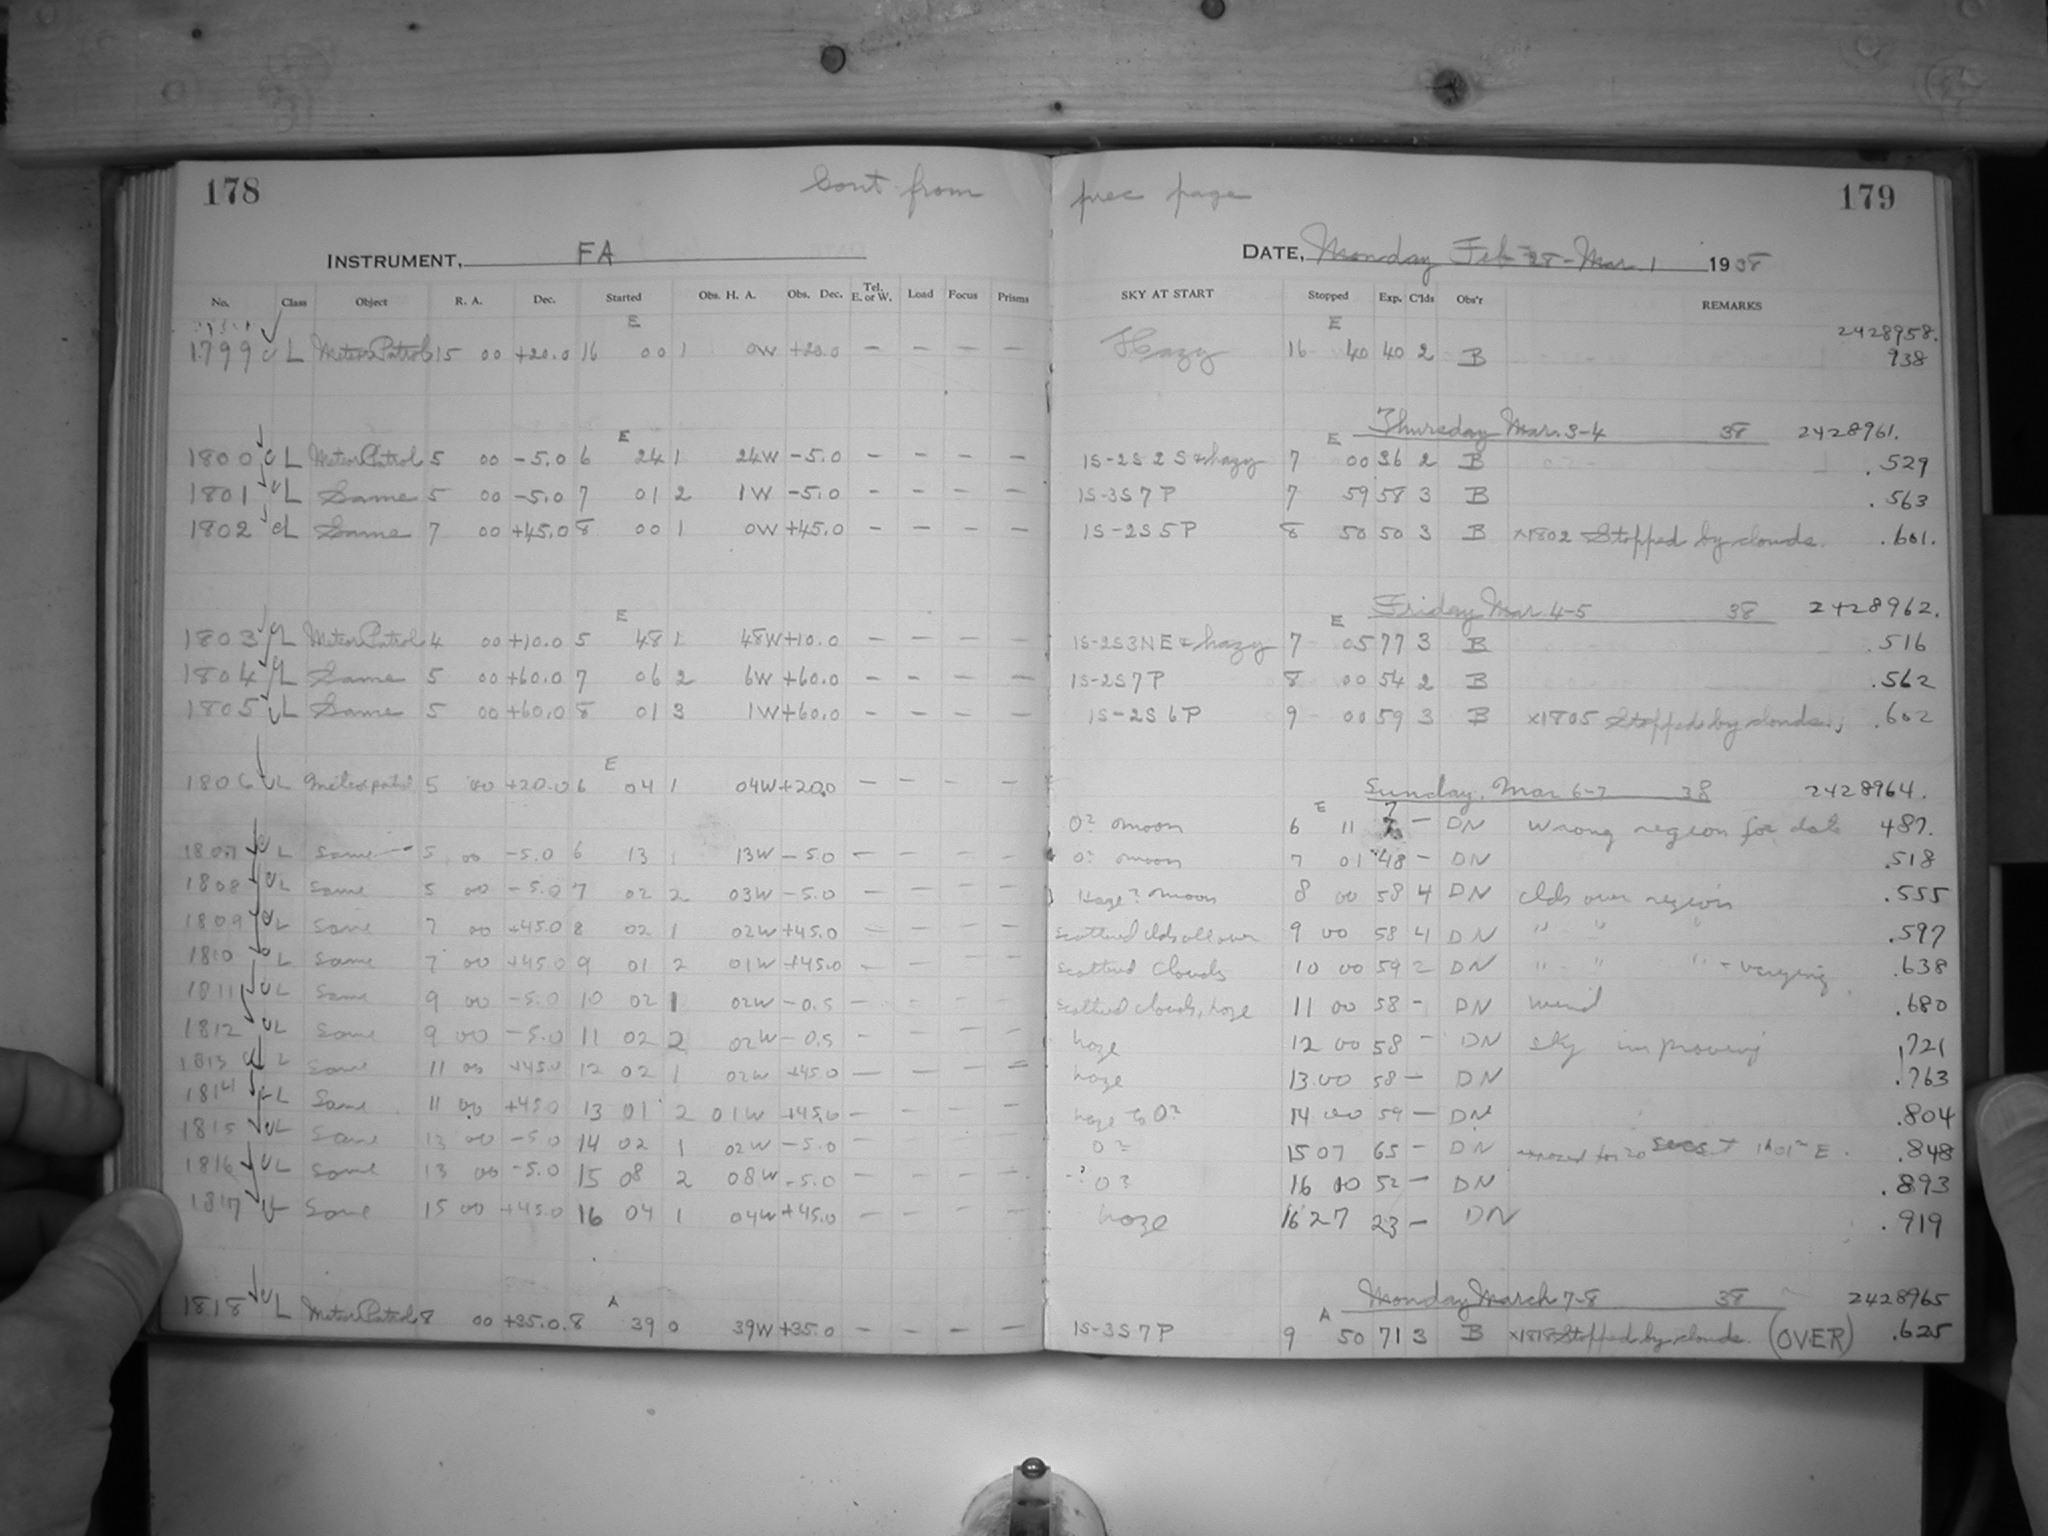 178 Cont from prec page 179
INSTRUMENT, FA DATE, Monday Feb 28 - Mar. 1 1938
No. Class Object R. A. Dec. Started Obs. H. A. Obs. Dec. Tel. E. or W. Load Focus Prisms SKY AT START Stopped Exp. C'lds Obs'r REMARKS
E E 2428958.
1799 L Meteor Patrol 15 00 +20.0 16 00 1 0W +20.0 - - - - Hazy 16 40 40 2 B 938
Thursday Mar. 3-4 38 2428961.
E E
1800 L Meteor Patrol 5 00 -5.0 6 24 1 24W -5.0 - - - - 1S-2S 2 S & hazy 7 00 36 2 B .529
1801 L Same 5 00 -5.0 7 01 2 1W -5.0 - - - - 1S-3S 7 P 7 59 58 3 B .563
1802 L Same 7 00 +45.0 8 00 1 0W +45.0 - - - - 1S-2S 5 P 8 50 50 3 B x1802 Stopped by clouds. .601.
Friday Mar. 4-5 38 2428962.
E E
1803 L Meteor Patrol 4 00 +10.0 5 48 1 48W +10.0 - - - - 1S-2S 3 NE & hazy 7 05 77 3 B .516
1804 L Same 5 00 +60.0 7 06 2 6W +60.0 - - - - 1S-2S 7 P 8 00 54 2 B .562
1805 L Same 5 00 +60.0 8 01 3 1W +60.0 - - - - 1S-2S 6 P 9 00 59 3 B x1805 Stopped by clouds. .602
Sunday, Mar 6-7 38 2428964.
E E
1806 L Meteor patrol 5 00 +20.0 6 04 1 04W +20.0 - - - - 0? moon 6 11 7 - DN wrong region for date 487.
1807 L Same 5 00 -5.0 6 13 1 13W -5.0 - - - - 0? moon 7 01 48 - DN .518
1808 L Same 5 00 -5.0 7 02 2 03W -5.0 - - - - Haze? moon 8 00 58 4 DN clds over region .555
1809 L Same 7 00 +45.0 8 02 1 02W +45.0 - - - - scattered clds all over 9 00 58 4 DN " " " .597
1810 L Same 7 00 +45.0 9 01 2 01W +45.0 - - - - scattered clouds 10 00 59 2 DN " " " + varying .638
1811 L Same 9 00 -5.0 10 02 1 02W -0.5 - - - - scattered clouds, haze 11 00 58 - DN wind .680
1812 L Same 9 00 -5.0 11 02 2 02W -0.5 - - - - haze 12 00 58 - DN sky improving .721
1813 L Same 11 00 +45.0 12 02 1 02W +45.0 - - - - haze 13 00 58 - DN .763
1814 L Same 11 00 +45.0 13 01 2 01W +45.0 - - - - haze to 0? 14 00 59 - DN .804
1815 L Same 13 00 -5.0 14 02 1 02W -5.0 - - - - 0? 15 07 65 - DN exposed for 20 secs + 1h01m E. .848
1816 L Same 13 00 -5.0 15 08 2 08W -5.0 - - - - 0? 16 00 52 - DN .893
1817 L Same 15 00 +45.0 16 04 1 04W +45.0 - - - - haze 16 27 23 - DN .919
Monday March 7-8 38 2428965
A A
1818 L Meteor Patrol 8 00 +35.0 8 39 0 39W +35.0 - - - - 1S-3S 7 P 9 50 71 3 B x1818 Stopped by clouds. (OVER) .625